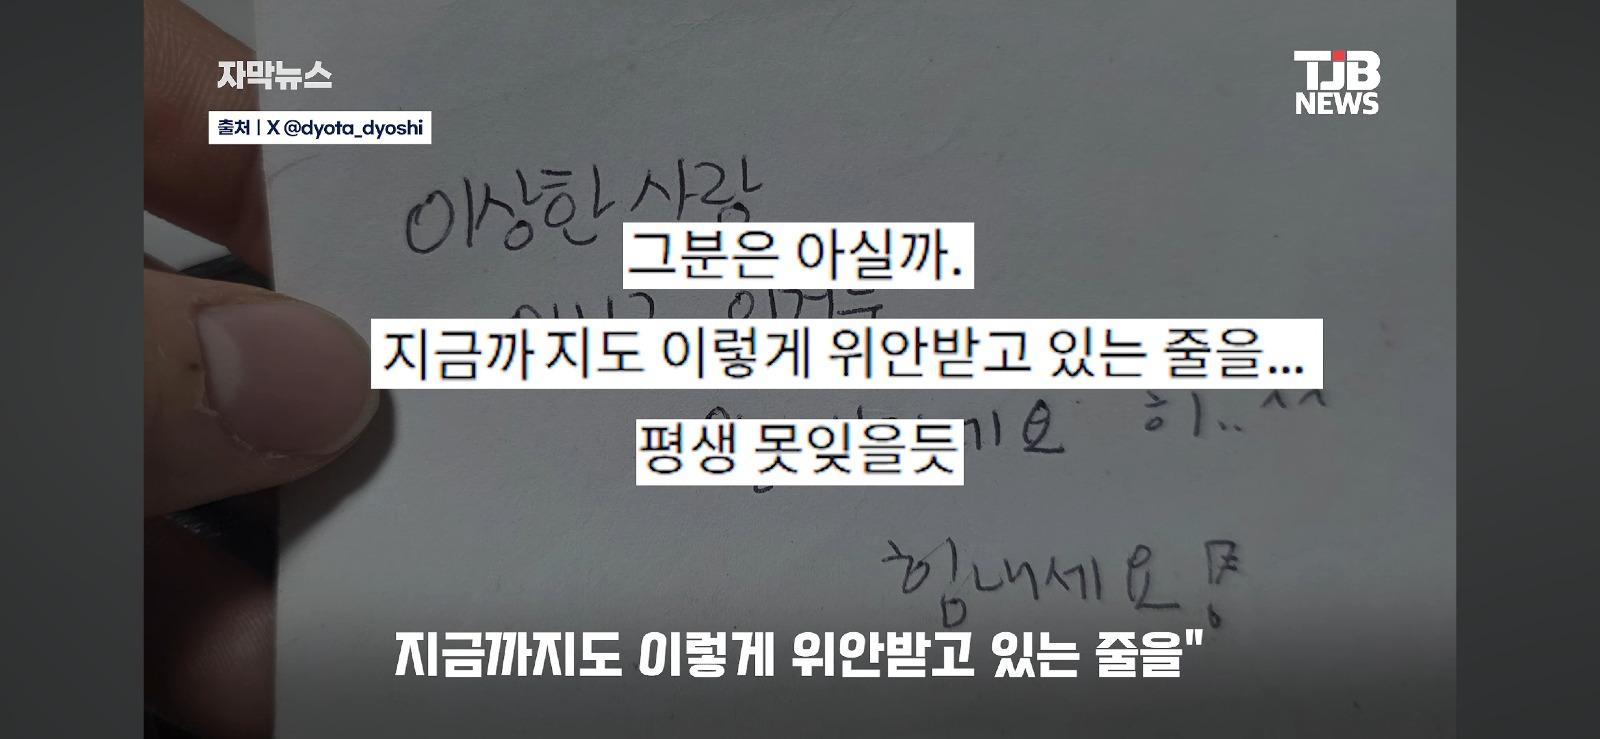 자막뉴스
TJB
NEWS
출처 | X @dyota_dyoshi
이상한 사랑
그분은 아실까.
지금까지도 이렇게 위안받고 있는 줄을...
히..^^
평생 못잊을듯
힘내세요
지금까지도 이렇게 위안받고 있는 줄을"